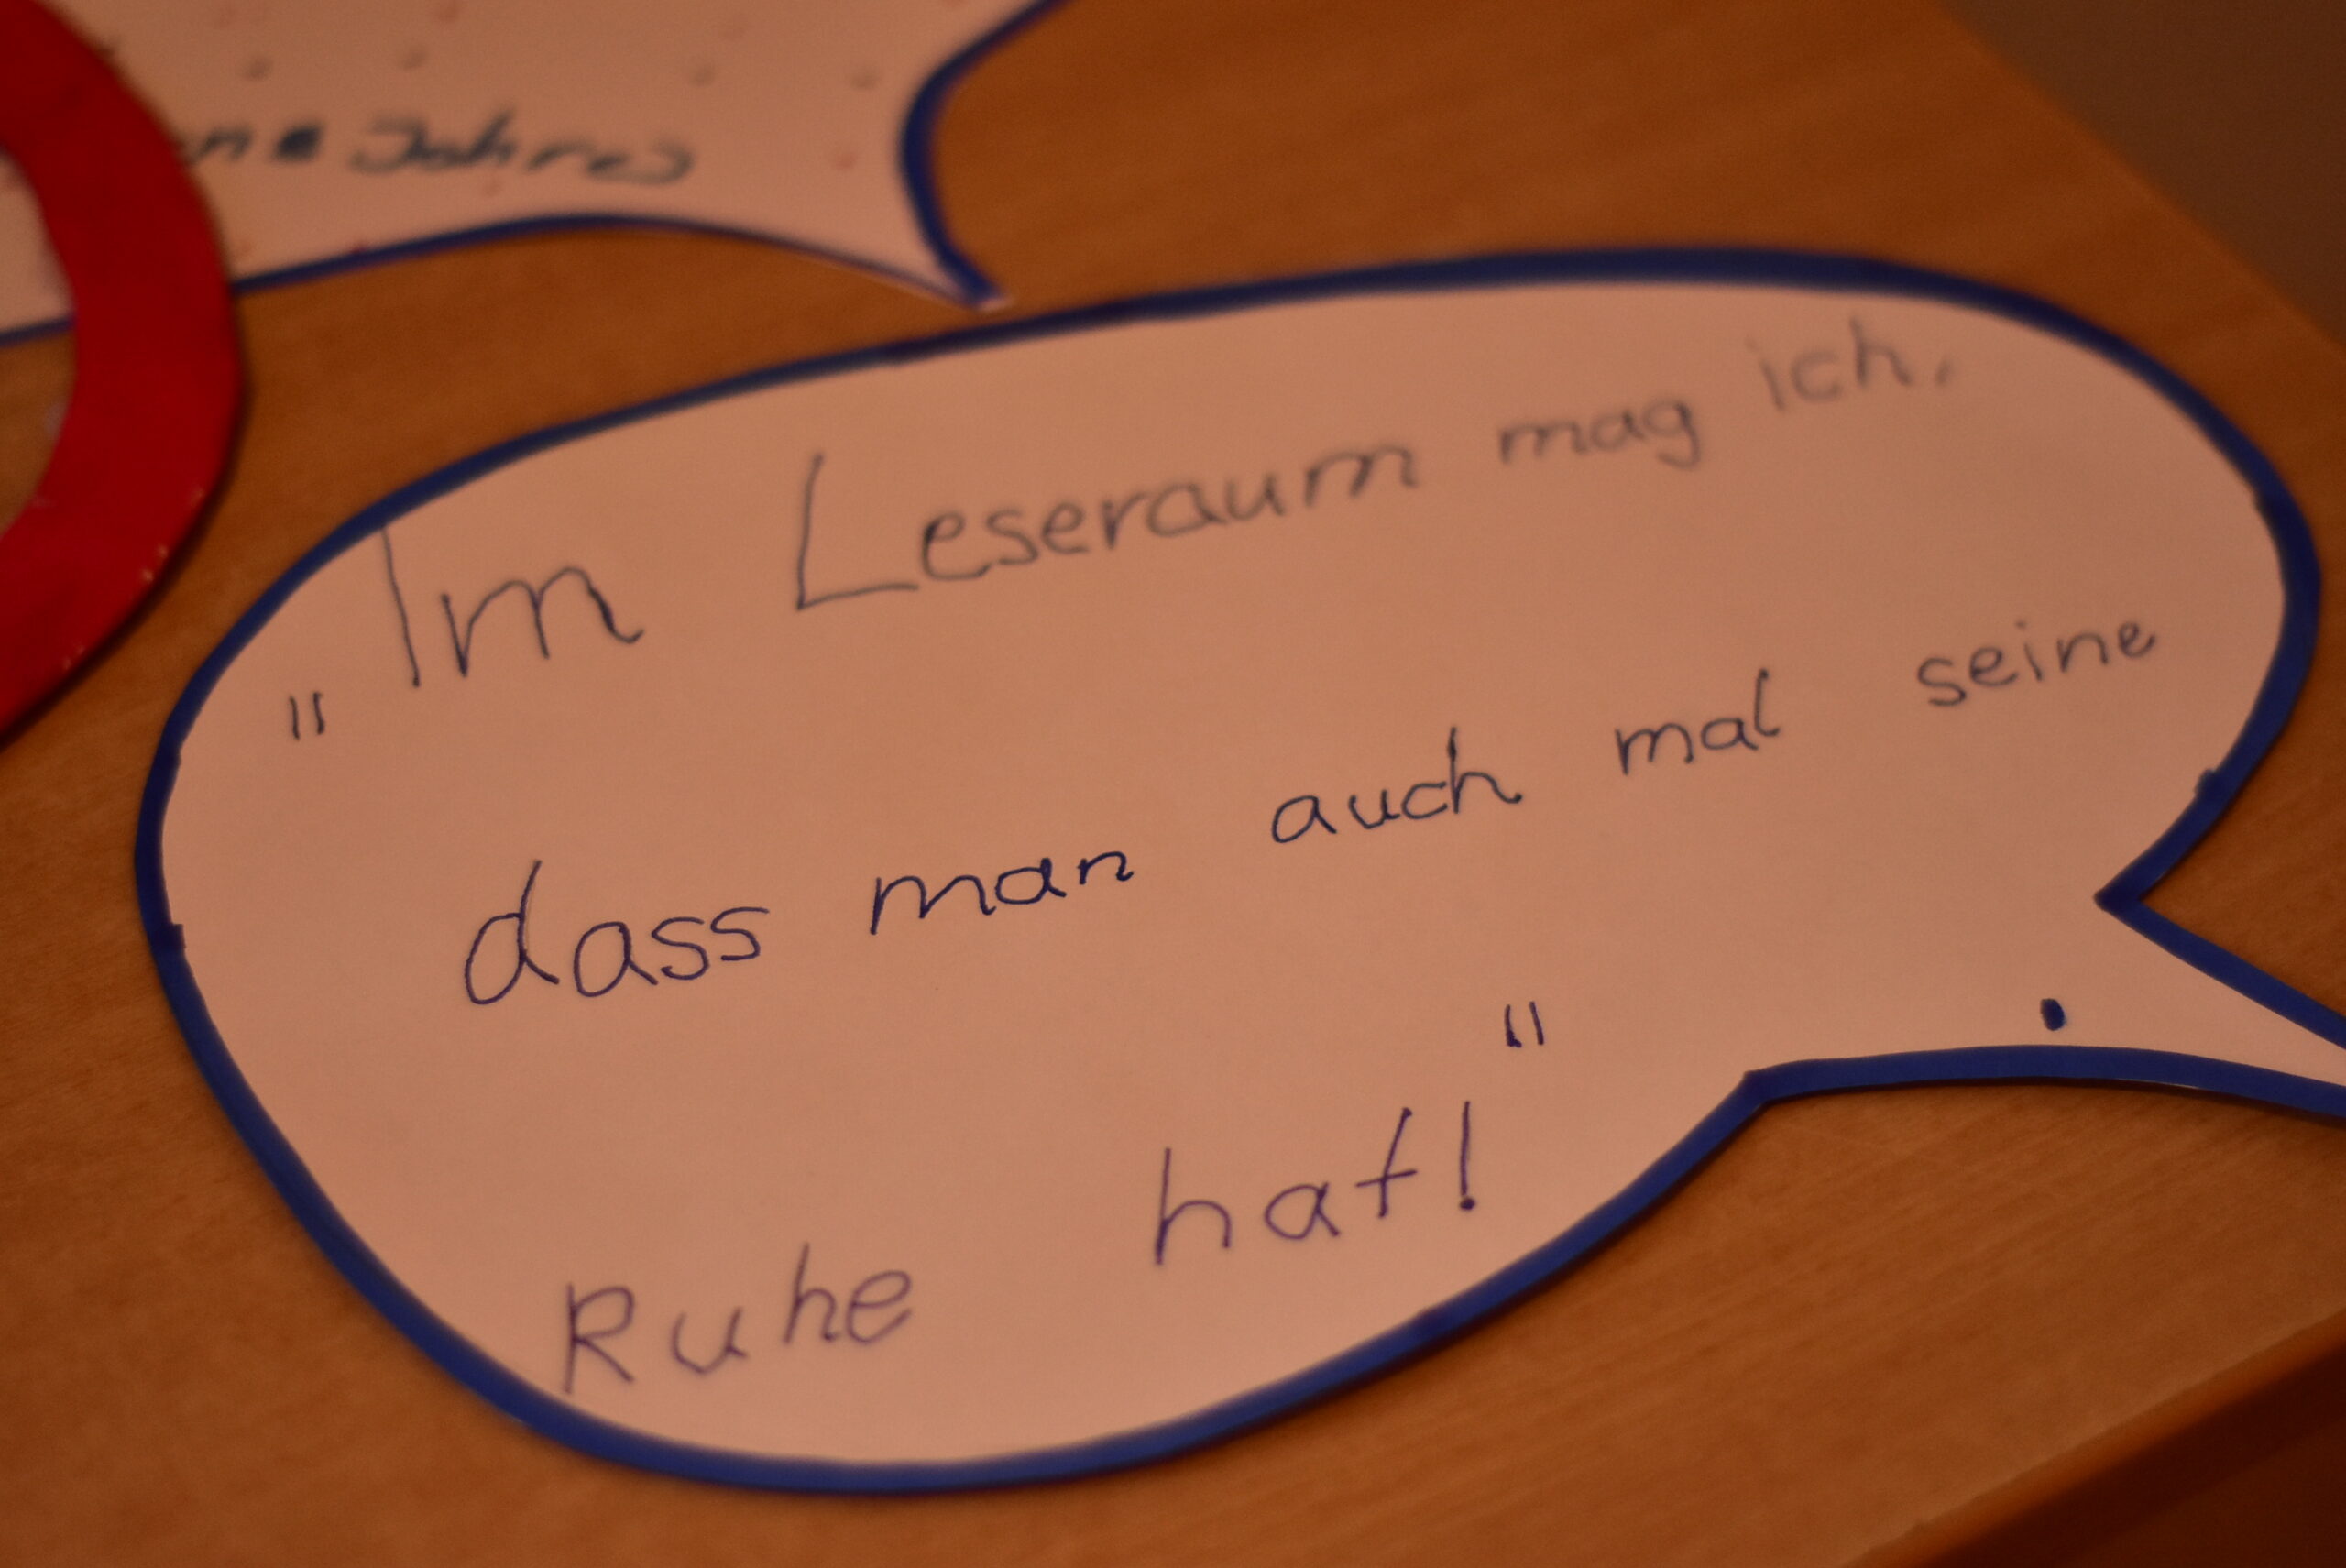 Jahres
„Im Leseraum mag ich,
dass man auch mal seine
Ruhe hat!"